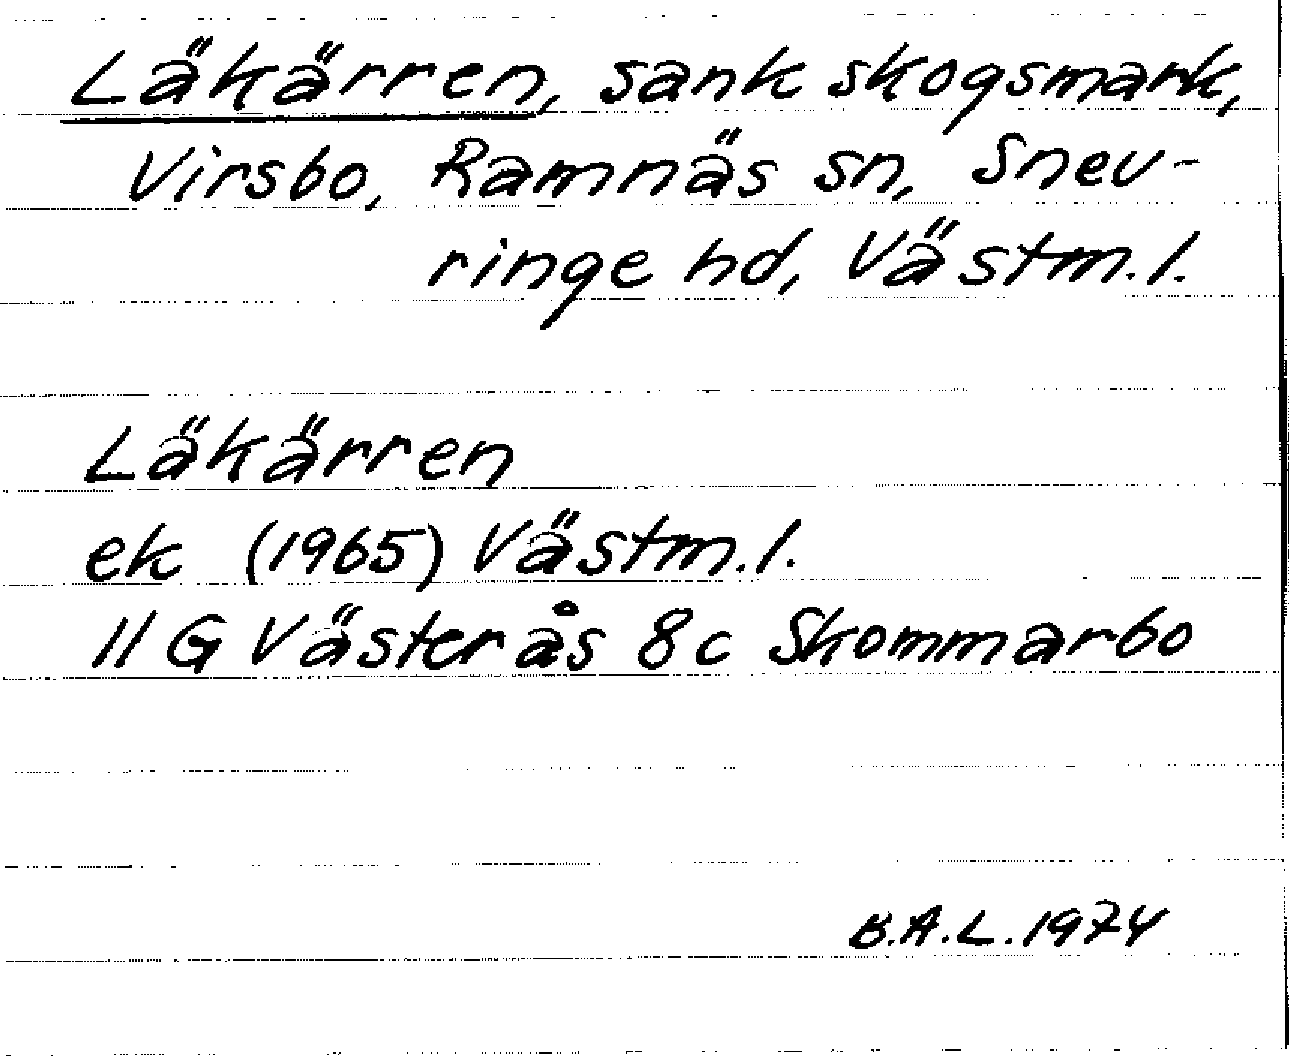 Läkärren, sank skogsmark,
Virsbo, Ramnäs sn, Snev-
ringe hd, Västm. l.
Läkärren
ek (1965) Västm. l.
11 G Västerås 8 c Skommarbo
B.A.L. 1974